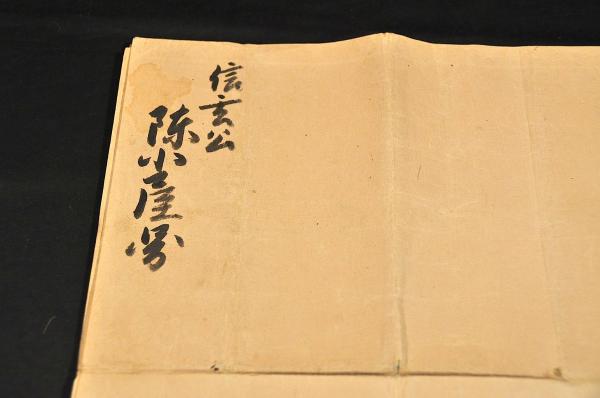 信玄公
陣小屋割